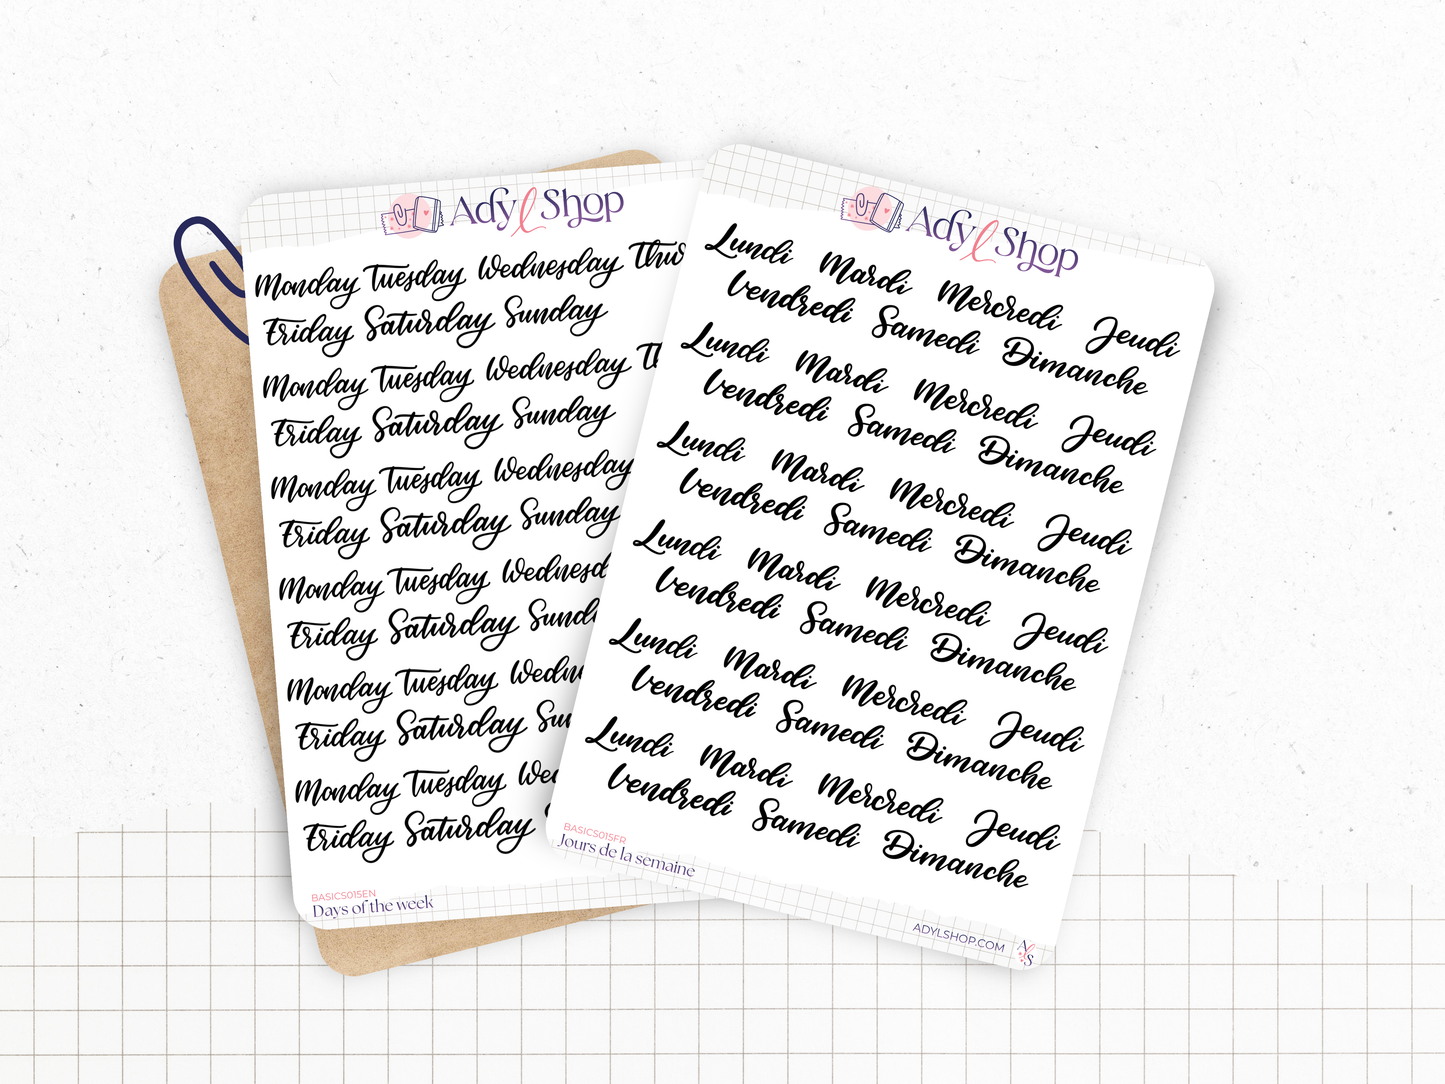 Adyl Shop
Monday Tuesday Wednesday
Friday Saturday Sunday
Monday Tuesday Wednesday
Friday Saturday Sunday
Monday Tuesday Wednesday
Friday Saturday Sunday
Monday Tuesday Wednesd
Friday Saturday Sund
Monday Tuesday Wedn
Friday Saturday Sun
Monday Tuesday Wed
Friday Saturday
BASICS015EN
Days of the week
Adyl Shop
Lundi Mardi Mercredi Jeudi
Vendredi Samedi Dimanche
Lundi Mardi Mercredi Jeudi
Vendredi Samedi Dimanche
Lundi Mardi Mercredi Jeudi
Vendredi Samedi Dimanche
Lundi Mardi Mercredi Jeudi
Vendredi Samedi Dimanche
Lundi Mardi Mercredi Jeudi
Vendredi Samedi Dimanche
Lundi Mardi Mercredi Jeudi
Vendredi Samedi Dimanche
BASICS015FR
Jours de la semaine
ADYLSHOP.COM
AlS